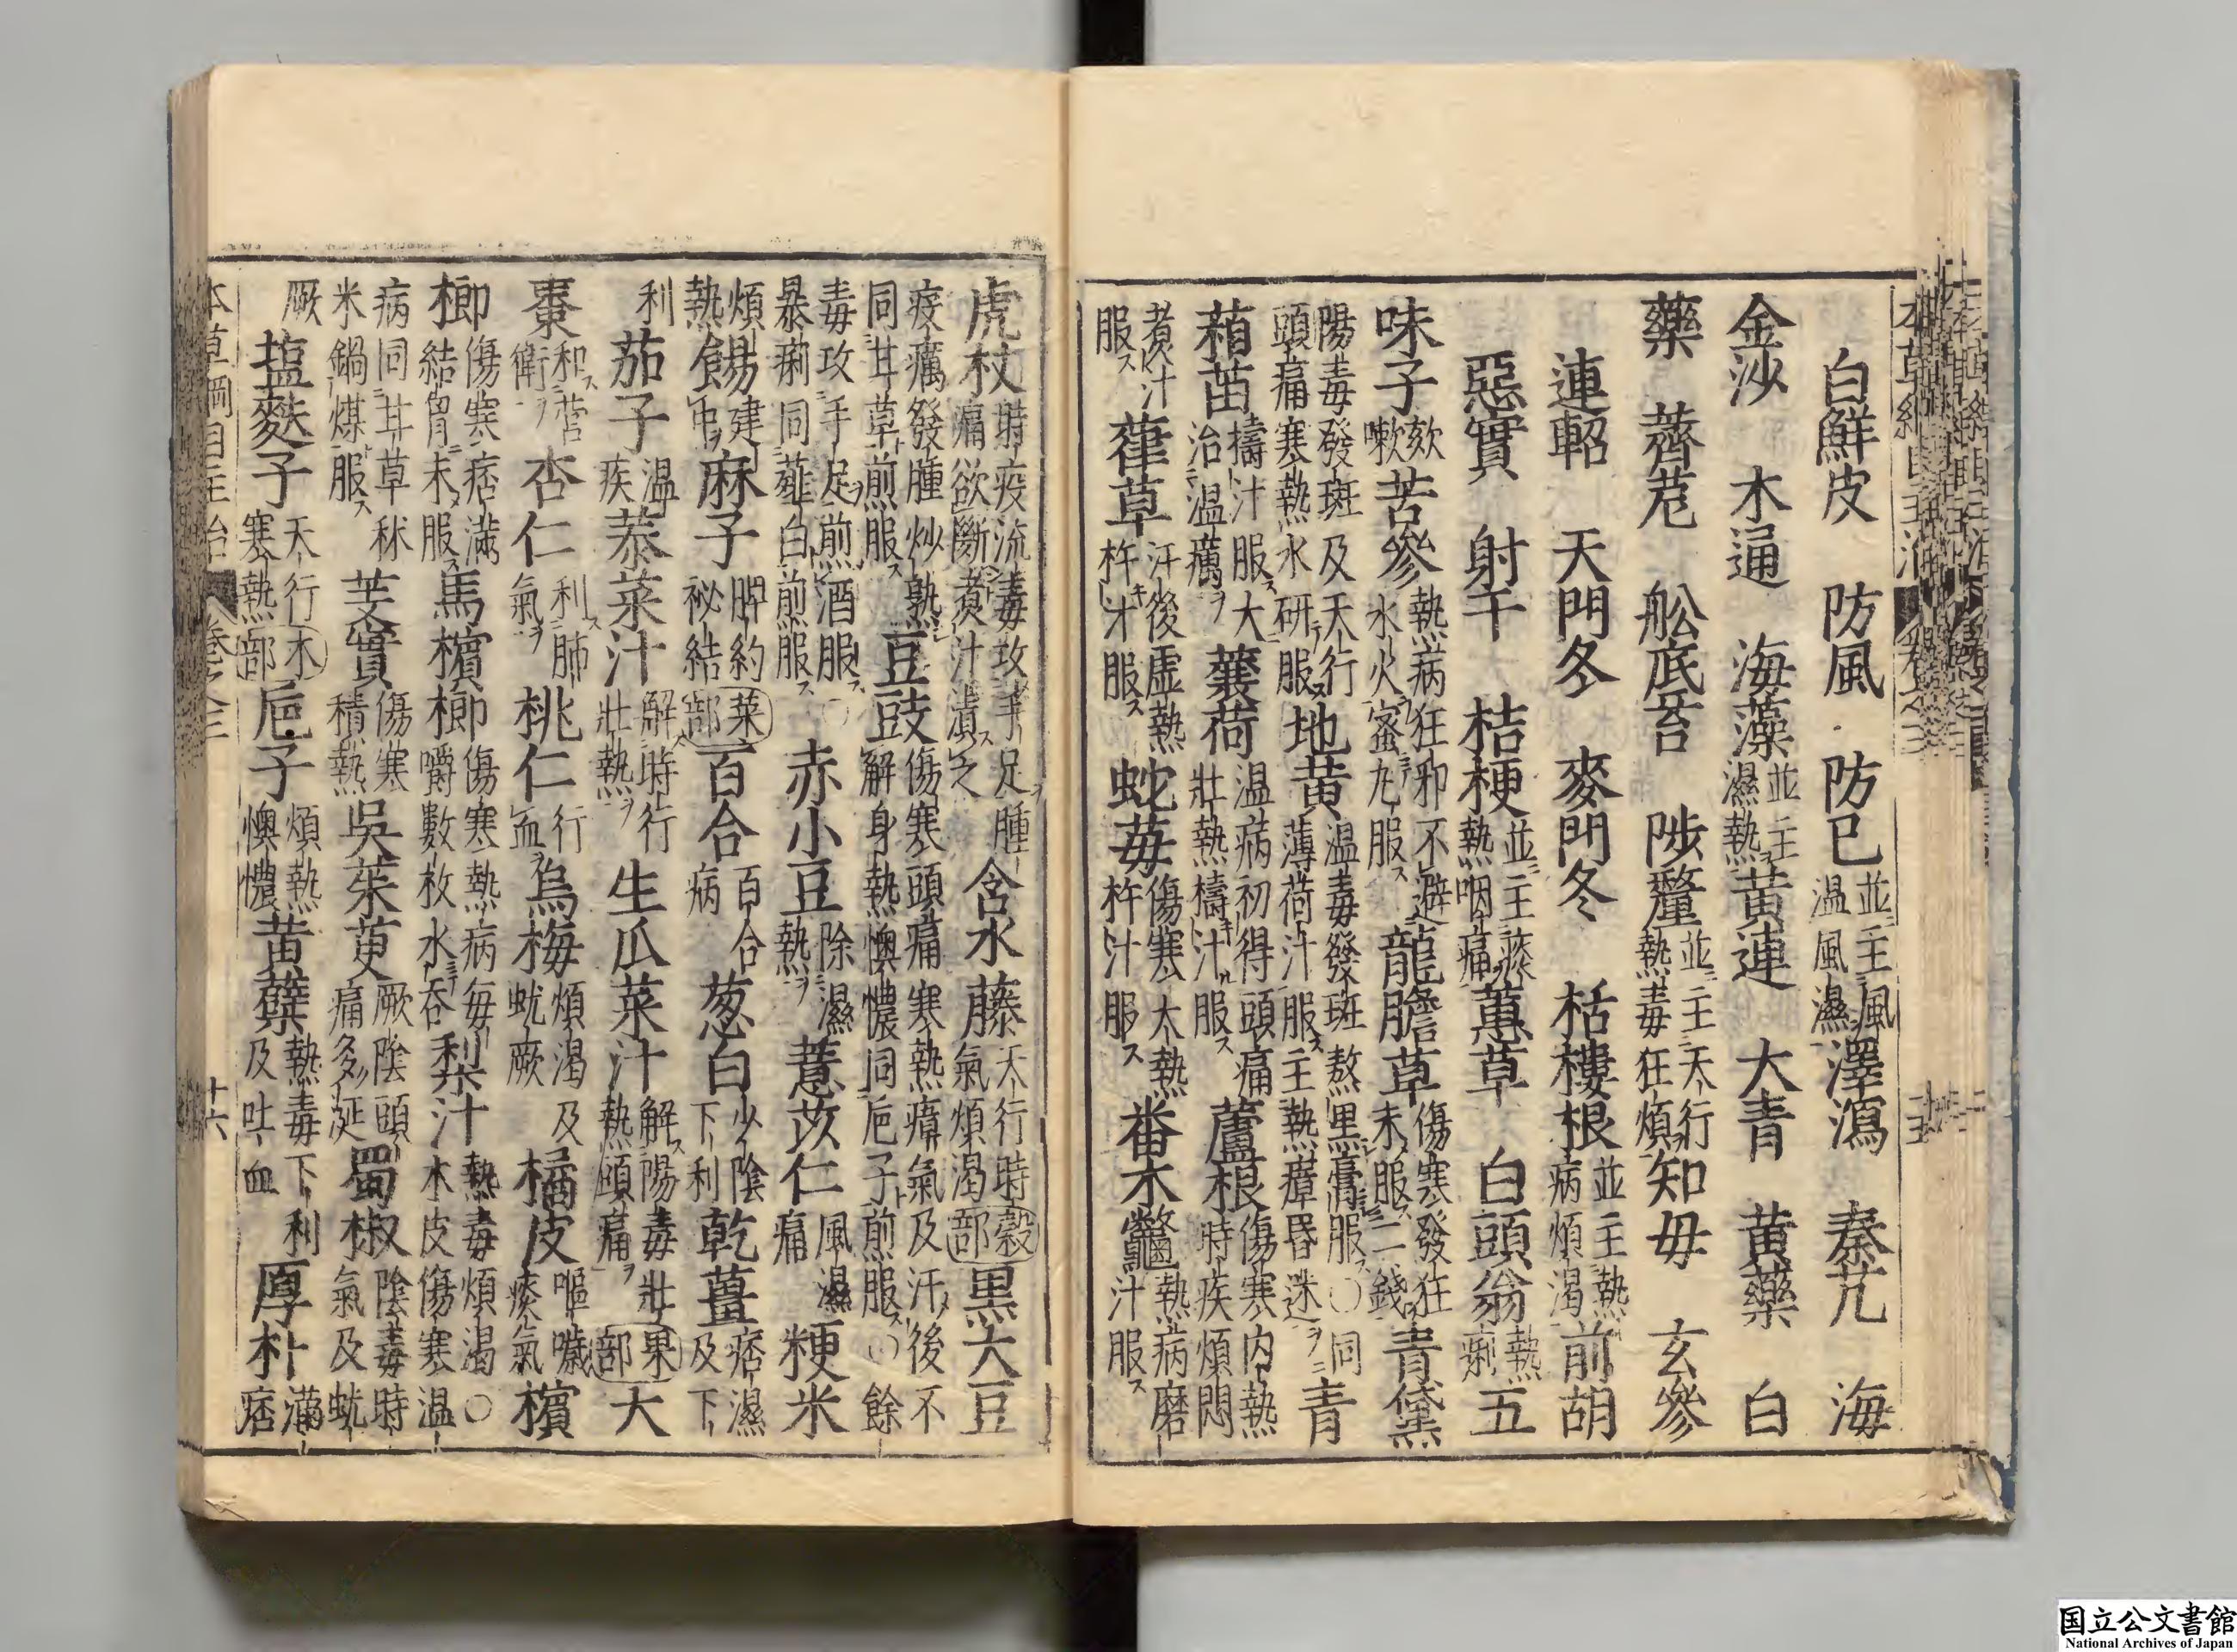 白鮮皮　防風　防已並主風温風濕澤瀉　秦艽　海
金沙　木通　海藻並主濕熱黄連　大青　黄藥　白
藥　薺苨　舩底苔　陟釐並主天行熱毒狂煩知毋　玄參
連軺　天門冬　麥門冬　栝樓根並主熱病煩渴前胡
惡實　射干　桔梗並主痰熱咽痛蕙草　白頭翁熱痢五
味子欬嗽苦參熱病狂邪不避水火蜜丸服龍膽草傷寒發狂末服二錢青黛
陽毒發斑及天行頭痛寒熱水研服地黄温毒發斑熬黒膏服○同薄荷汁服主熱瘴昏迷青
葙苗擣汁服大治温癘蘘荷温病初得頭痛壯熱擣汁服蘆根傷寒内熱時疾煩悶
煮汁服葎草汗後虚熱杵汁服蛇苺傷寒大熱杵汁服番木鼈熱病磨汁服
虎杖時疫流毒攻手足腫痛欲斷煮汁漬之含水藤天行時氣煩渴穀部黒大豆
疫癘發腫炒熟同甘草煎服豆豉傷寒頭痛寒熱瘴氣及汗後不解身熱懊憹同巵子煎服○餘
毒攻手足煎酒服○暴痢同薤白煎服赤小豆除濕熱薏苡仁風濕痛粳米
煩熱餳建中麻子脾約祕結菜部百合百合病葱白少陰下利乾薑痞濕及下
利茄子温疾菾菜汁解時行壯熱生瓜菜汁解陽毒壯熱頭痛果部大
棗和營衛杏仁利肺氣桃仁行血烏梅煩渴及蚘厥橘皮嘔噦痰氣檳
榔傷寒痞滿結胷末服馬檳榔傷寒熱病毎嚼數枚水吞梨汁熱毒煩渴○木皮傷寒温
病同甘草秫米鍋煤服芰實傷寒積熱吳茱萸厥陰頭痛多涎蜀椒陰毒時氣及蚘
厥塩麩子天行寒熱木部巵子煩熱懊憹黄蘗熱毒下利及吐血厚朴滿痞
本草綱目主治　卷之三　十六
国立公文書館
National Archives of Japan